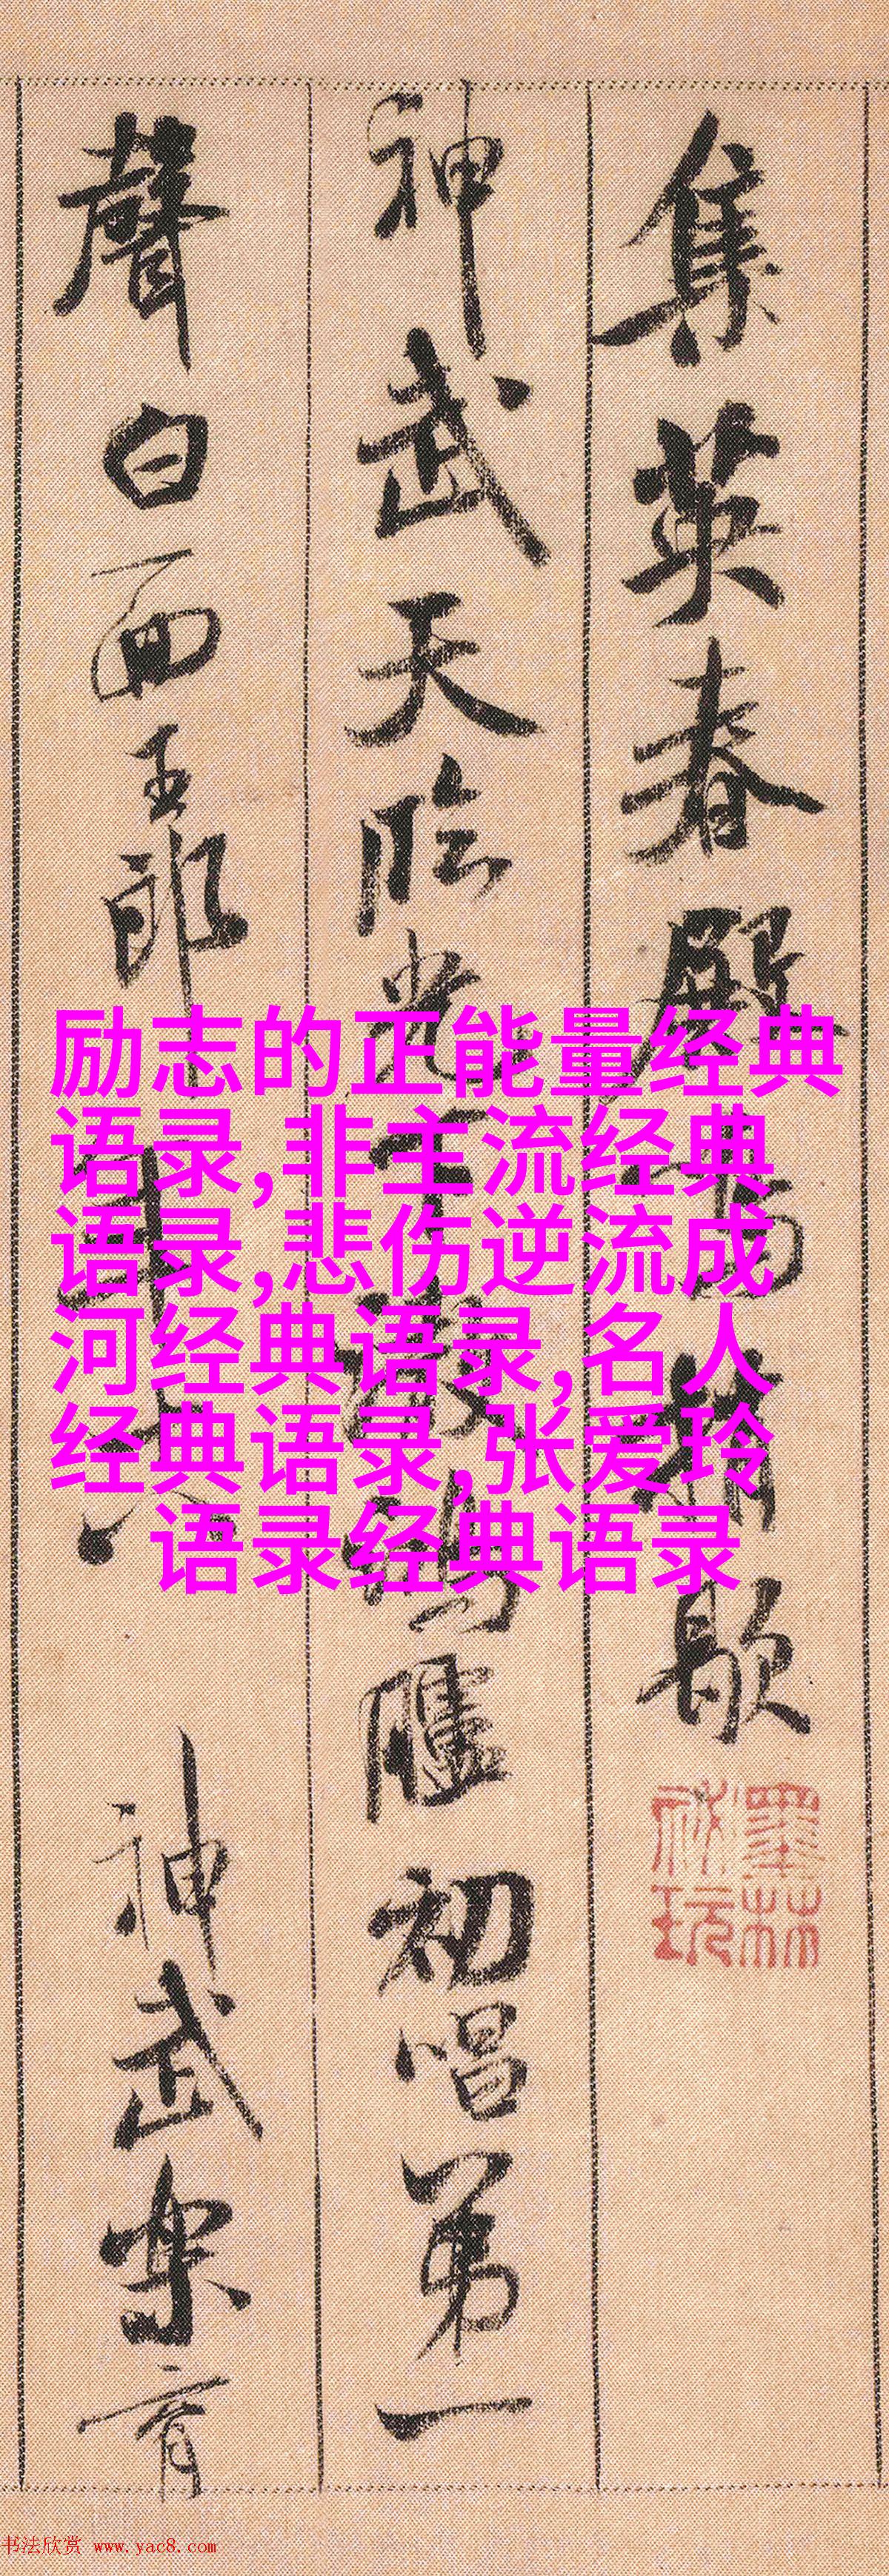 集英春殿鳴梢歇
神武天臨光下澈鴻臚初唱第一
聲白面王郎年十八 神武樂育
墨林
祕玩
励志的正能量经典
语录,非主流经典
语录,悲伤逆流成
河经典语录,名人
经典语录,张爱玲
语录经典语录
书法欣赏 www.yac8.com